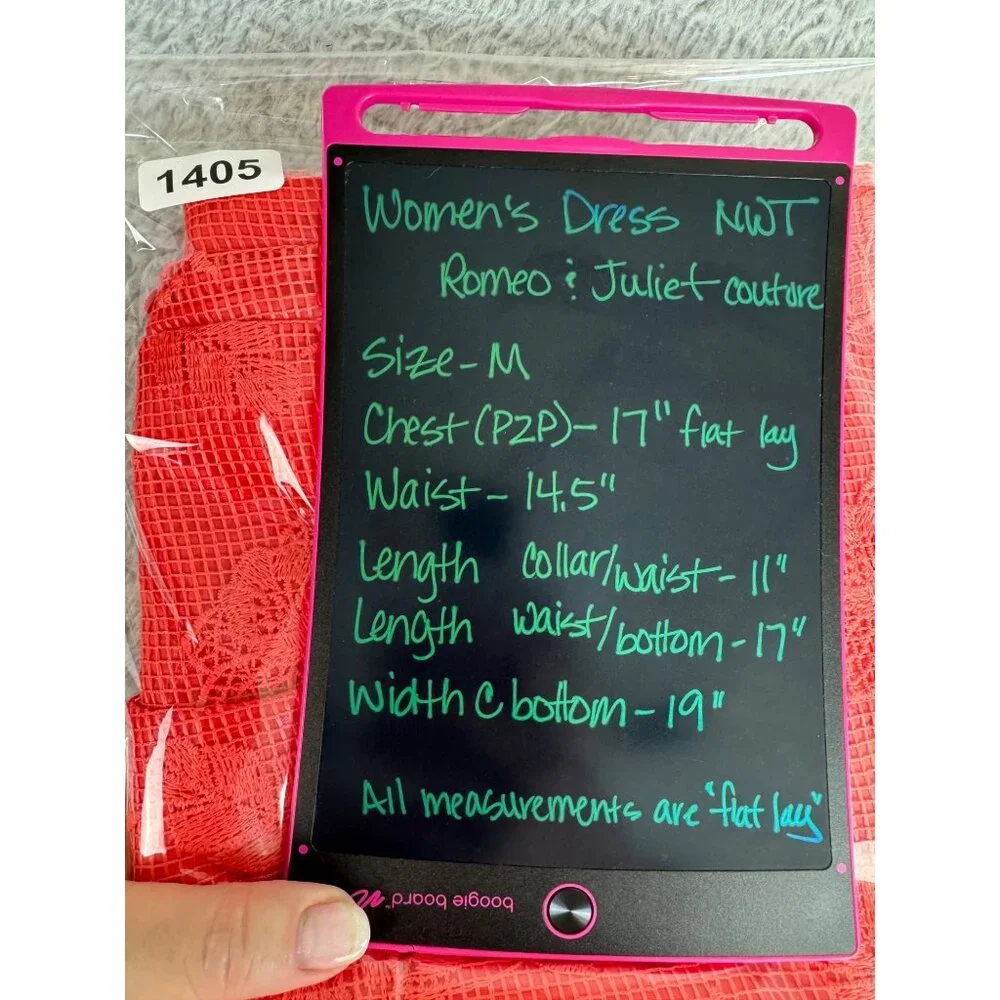 1405
Women's Dress NWT
Romeo & Juliet couture
Size - M
Chest (P2P) - 17" flat lay
Waist - 14.5"
Length collar/waist - 11"
Length waist/bottom - 17"
Width C bottom - 19"
All measurements are "flat lay"
boogie board™